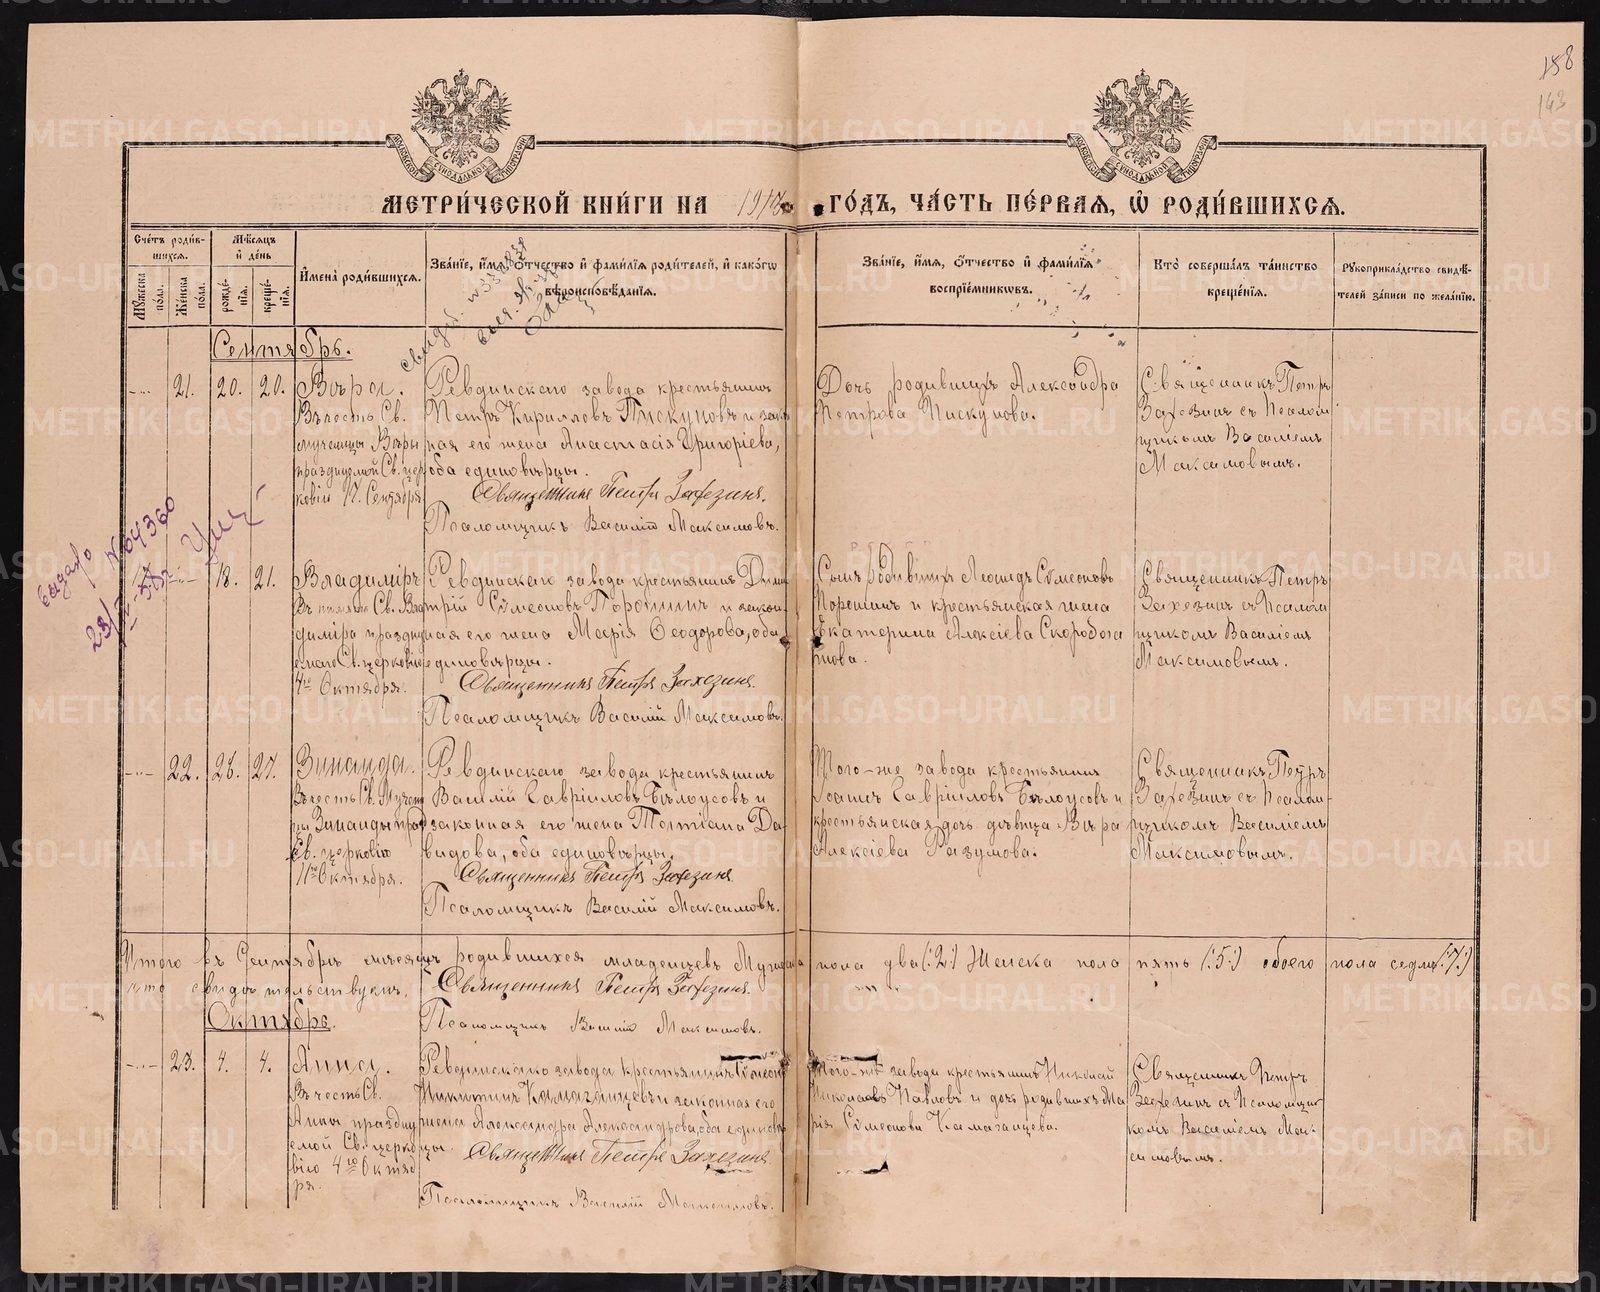 158
143
МОСКОВСКОЙ СѴНОДАЛЬНОЙ ТИПОГРАФІИ
МОСКОВСКОЙ СѴНОДАЛЬНОЙ ТИПОГРАФІИ
МЕТРИ́ЧЕСКОЙ КНИ́ГИ НА
ГО́ДЪ, ЧА́СТЬ ПЕ́РВАЯ, Ѡ҆ РОДИ́ВШИХСЯ.
Сче́тъ роди́в-
шихся.
Мꙋ́жеска
по́ла.
Же́нска
по́ла.
Мѣ́сяцъ
и҆ де́нь
рожде́-
нїя.
креще́-
нїя.
И҆мена̀ роди́вшихся.
Зва́нїе, и҆́мя, ѻ҆́тчество и҆ фами́лїя роди́телей, и҆ како́гѡ
вѣроисповѣ́данїя.
Зва́нїе, и҆́мя, ѻ҆́тчество и҆ фами́лїя
воспрїе́мникѡвъ.
Кто̀ соверша́лъ та́инство
креще́нїя.
Рꙋкоприкла́дство свидѣ́-
телей за́писи по жела́нїю.
Сентябрь.
21. 20. 20.
Вѣра.
Въ честь Св.
мученицы Вѣры
Св. цер
ковію 17. Сентября
Ревдинскаго завода крестьянинъ
Петръ Кирилловъ Пискуновъ и закон
ная его жена Анастасія Григоріева,
оба единовѣрцы.
Священникъ Петръ
Псаломщикъ Василій Максимовъ.
Дочь родившихъ Александра
Петрова Пискунова.
Священникъ Петръ
съ Псалом
щикомъ Василіемъ
Максимовымъ.
выдано
№ 04360
18. 21.
Владиміръ
Въ память Св. Вла
диміра праздну
емаго Св. церковію
4го Октября.
Ревдинскаго завода крестьянинъ Дими
трій Сѵмеоновъ Порошинъ и закон-
ная его жена Марія Ѳеодорова, оба
единовѣрцы.
Священникъ Петръ
Псаломщикъ Василій Максимовъ.
Сынъ родившихъ Леонидъ Сѵмеоновъ
Порошинъ и крестьянская жена
Екатерина Алексіева Скоробога
това.
Священникъ Петръ
съ Псалом
щикомъ Василіемъ
Максимовымъ.
22. 26. 27.
Зинаида.
Въ честь Св. Мучени
цы Зинаиды праз
Св. церковію
11го Октября.
Ревдинскаго завода крестьянинъ
Василій Гавріиловъ Бѣлоусовъ и
законная его жена Татіана Да-
видова, оба единовѣрцы.
Священникъ Петръ
Псаломщикъ Василій Максимовъ.
Того-же завода крестьянинъ
Іоаннъ Гавріиловъ Бѣлоусовъ и
крестьянская дочь дѣвица Вѣра
Алексіева Разумова.
Священникъ Петръ
съ Псалом-
щикомъ Василіемъ
Максимовымъ.
Итого въ Сентябрѣ мѣсяцѣ родившихся младенцевъ Мужеска пола два (:2:) Женска пола пять (:5:) обоего пола седмь (:7:)
что свидѣтельствуемъ. Священникъ Петръ
Октябрь.
Псаломщикъ Василій Максимовъ.
23. 4. 4.
Анна.
Въ честь Св.
Анны празднуе
емой Св. церко
вію 4го Октяб
ря.
Ревдинскаго завода крестьянинъ Сѵмеонъ
Никитинъ Камаганцевъ и законная его
жена Александра Александрова, оба единовѣр
цы. Священникъ Петръ
Псаломщикъ Василій Максимовъ.
Того-же завода крестьянинъ Николай
Николаевъ Павловъ и дочь родившихъ Ма
рія Сѵмеонова Камаганцева.
Священникъ Петръ
съ Псаломщи
комъ Василіемъ Мак-
симовымъ.
METRIKI.GASO-URAL.RU